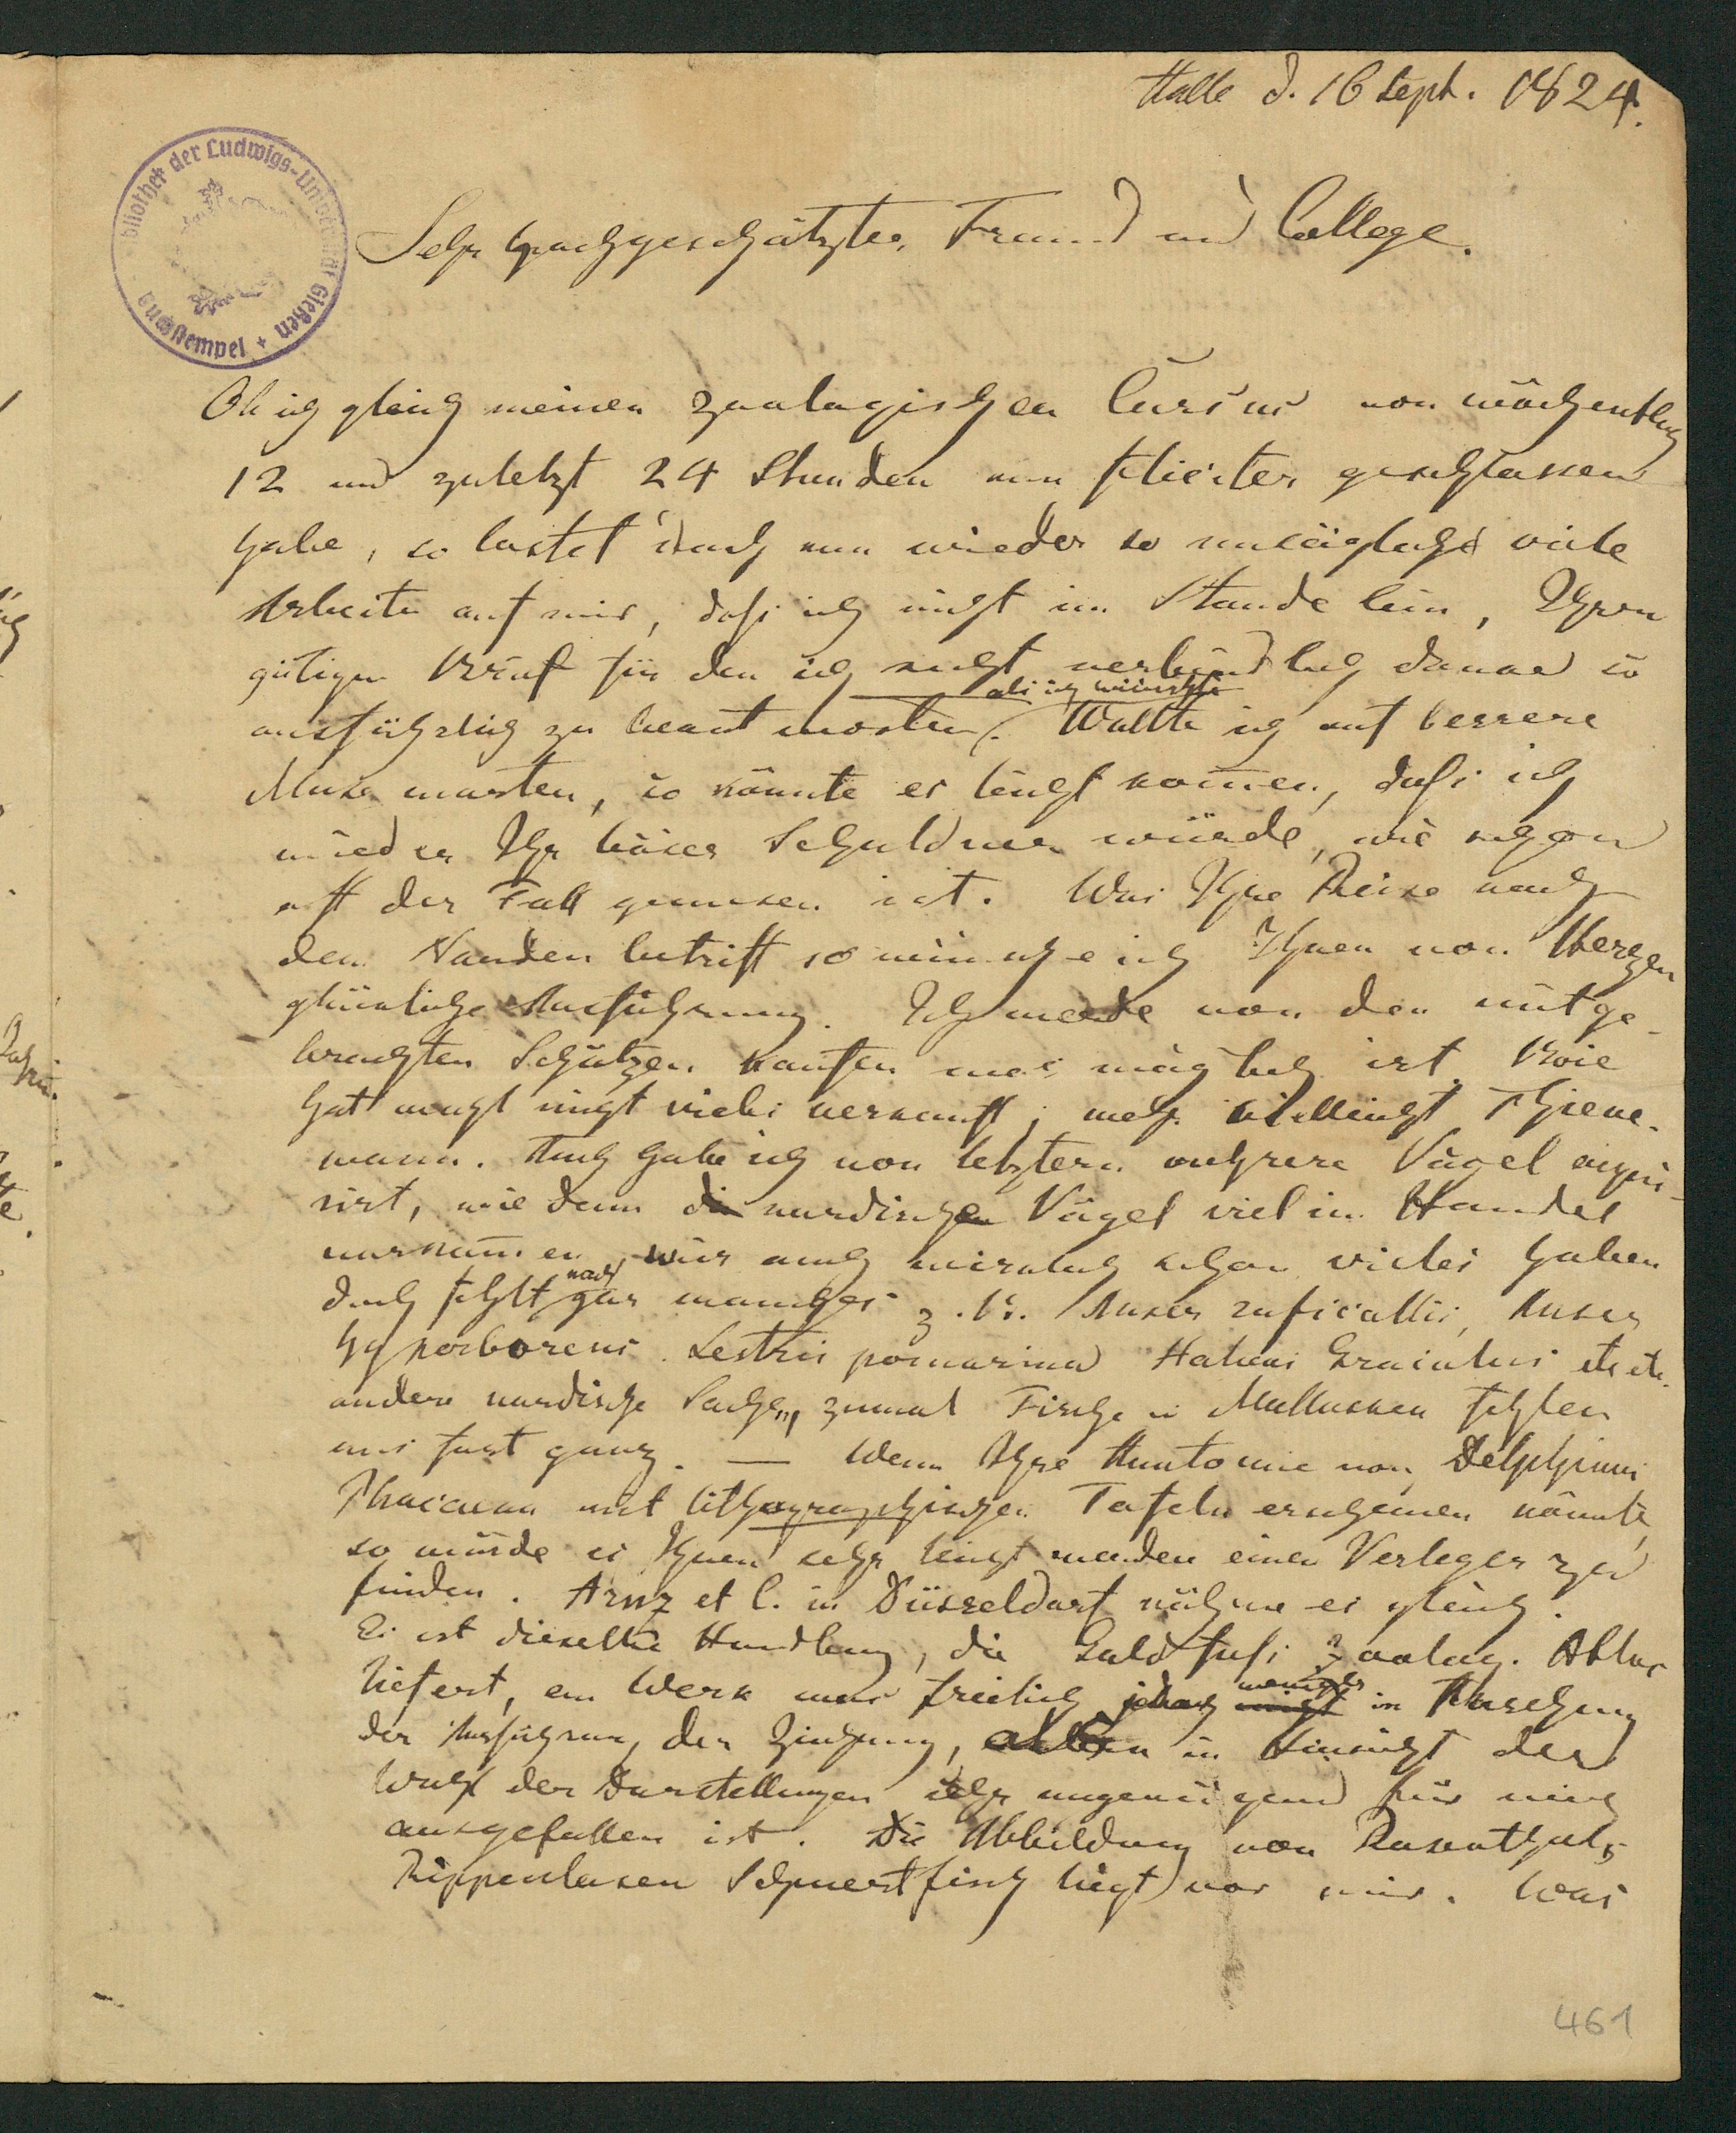 Halle d. 16 Sept. 1824.
Bibliothek der Ludwigs-Universität Gießen + Buchstempel
Sehr hochgeschätzter Freund und College.
Ob ich gleich meinen zoologischen Cursus von wöchentlich
12 und zuletzt 24 Stunden nun geschlossen
habe, so lastet doch nun wieder so unsäglich viele
Arbeiten auf mir, daß ich nicht im Stande bin, Ihren
gütigen Brief für den ich recht verbindlich danke so
ausführlich zu beantworten, als ich wünschte. Wollte ich auf bessere
Muse warten, so könnte es leicht kom̄en, daß ich
wieder Ihr böser Schuldner würde, wie schon
oft der Fall gewesen ist. Was Ihre Reise nach
dem Norden betrift so wünsche ich Ihnen von Herzen
glückliche Ausführung. Ich werde von den mitge-
brachten Schätzen kaufen was möglich ist. Boie
hat wohl nicht vieles verkauft; mehr vielleicht Thiene-
mann. Auch habe ich von letztern mehrere Vögel acqui-
rirt, wie denn die nordischen Vögel viel im Handel
vorkom̄en, wir auch wirklich schon vieles haben
doch fehlt noch gar manches z. B. Anser ruficollis, Anser
hyperboreus. Lestris pomarina Halieus Graculus etc etc.
andere nordische Sachen, zumal Fische u Mollusken fehlen
uns fast ganz. — Wenn Ihre Anatomie von Delphinus
Phocaena mit lithographischen Tafeln erscheinen könnte,
so würde es Ihnen sehr leicht werden einen Verleger zu
finden. Arnz et C. in Düsseldorf nähme es gleich.
Es ist dieselbe Handlung, die Goldfuß zoolog. Atlas
liefert, ein Werk was freilich jedoch weniger in Ansehung
der Ausführung der Zeichnung, als in Hinsicht der
Wahl der Darstellungen sehr ungenügend für mich
ausgefallen ist. Die Abbildung von Rosenthals
Rippenlosen Schwertfisch liegt vor mir. Was
461